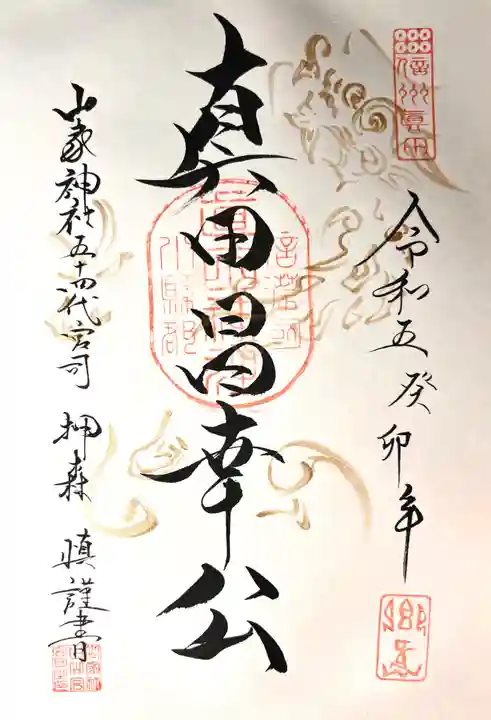 信州眞田
令和五癸卯年
真田昌幸公
山家神社五十四代宮司 押森 慎謹書